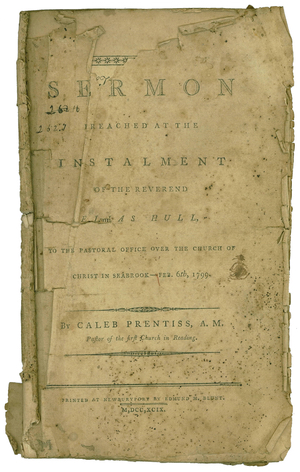 SERMON
PREACHED AT THE
INSTALMENT
OF THE REVEREND
AS HULL,
TO THE PASTORAL OFFICE OVER THE CHURCH OF
CHRIST IN SEABROOK 6th, 1799.
By CALEB PRENTISS, A. M.
Pastor of the first Church in Reading.
PRINTED AT NEWBURYPORT BY M. BLUNT.
M,DCC,XCIX.